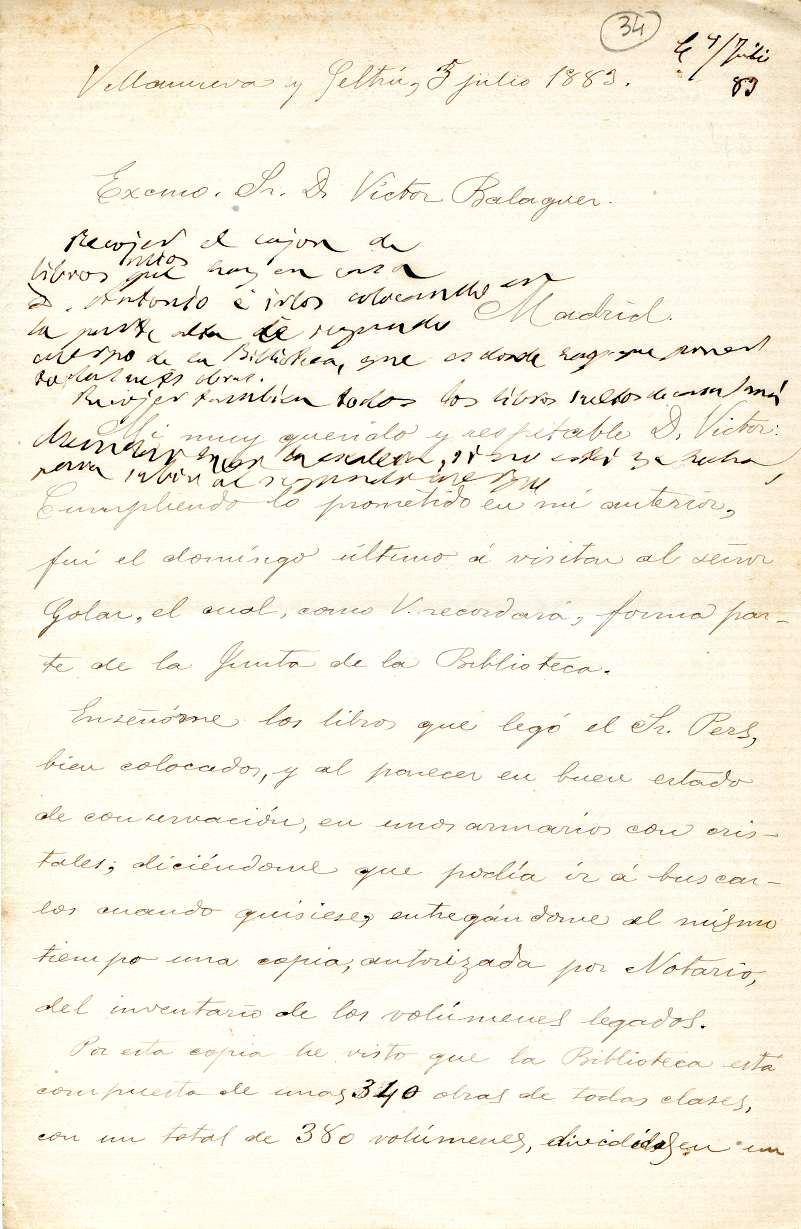 34
4/Julio
83
Villanueva y Geltrú, 5 julio 1883.
Excmo. Sr. D. Víctor Balaguer.
Recojer el cajon de
libros mios que hay en casa
D. Antonio é irlos colocando en
Madrid.
la parte alta de segundo
cuerpo de la Biblioteca, que es donde hay que poner
todas mis obras.
Recojer tambien todos los libros sueltos de casa
Mi muy querido y respetable D. Víctor:
la escalera, si no está ya hecha,
para subir al segundo cuerpo
Cumpliendo lo prometido en mi anterior,
fuí el domingo último á visitar al señor
Golar, el cual, como V. recordará, forma par-
te de la Junta de la Biblioteca.
Enseñóme los libros que legó el Sr. Pers,
bien colocados, y al parecer en buen estado
de conservación, en unos armarios con cris-
tales; diciéndome que podía ir á buscar-
los cuando quisiese, entregándome al mismo
tiempo una copia, autorizada por Notario,
del inventario de los volúmenes legados.
Por esta copia he visto que la Biblioteca está
compuesta de unas 340 obras de todas clases,
con un total de 380 volúmenes, divididos en un